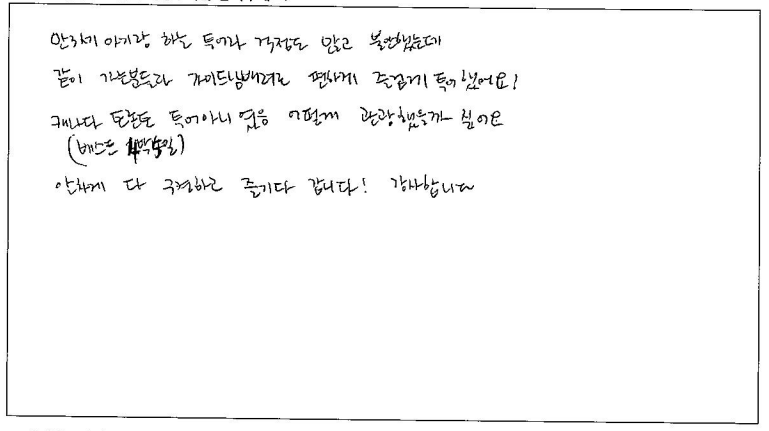 만3세 아기랑 하는 투어라 걱정도 많고 불안했는데
같이 가는분들과 가이드님배려로 편하게 즐겁게 투어했어요!
캐나다 토론토 투어아니였음 어떻게 관광했을까 싶어요
(베스트 4박5일)
알차게 다 구경하고 즐기다 갑니다! 감사합니다